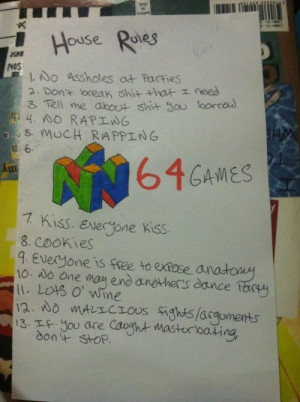 House Rules
1. No Assholes at Parties
2. Don't break shit that I need
3. Tell me about shit you borrow
4. NO RAPING
5. MUCH RAPPING
6.
64 GAMES
7. Kiss. Everyone Kiss.
8. COOKIES
9. Everyone is free to expose anatomy
10. No one may end another's dance party
11. LOTS O' Wine
12. NO MALICIOUS fights/arguments
13. If you are caught masturbating,
don't stop.